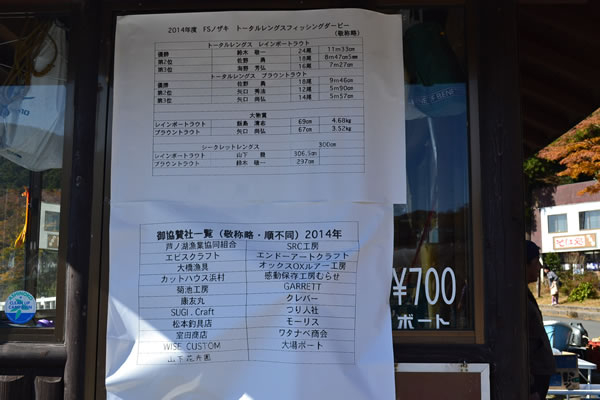 2014年度 FSノザキ トータルレングスフィッシングダービー
(敬称略)
トータルレングス レインボートラウト
優勝 鈴木 敬一 24尾 11m33cm
第2位 佐野 勇 18尾 8m47cm5mm
第3位 海野 芳弘 16尾 7m27cm
トータルレングス ブラウントラウト
優勝 佐野 勇 18尾 9m46cm
第2位 矢口 秀法 12尾 5m90cm
第3位 矢口 尚弘 14尾 5m57cm
大物賞
レインボートラウト 飯島 清志 69cm 4.68kg
ブラウントラウト 矢口 尚弘 67cm 3.52kg
シークレットレングス 300cm
レインボートラウト 山下 306.5cm
ブラウントラウト 鈴木 敬一 297cm
御協賛社一覧(敬称略・順不同)2014年
芦ノ湖漁業協同組合 SRC工房
エビスクラフト エンドーアートクラフト
大橋漁具 オックスOXルアー工房
カットハウス浜村 感動保存工房むらせ
菊池工房 GARRETT
康友丸 クレバー
SUGI.Craft つり人社
松本釣具店 モーリス
室田商店 ワタナベ商会
WISE CUSTOM 大場ボート
山下花卉園
¥700
ボート